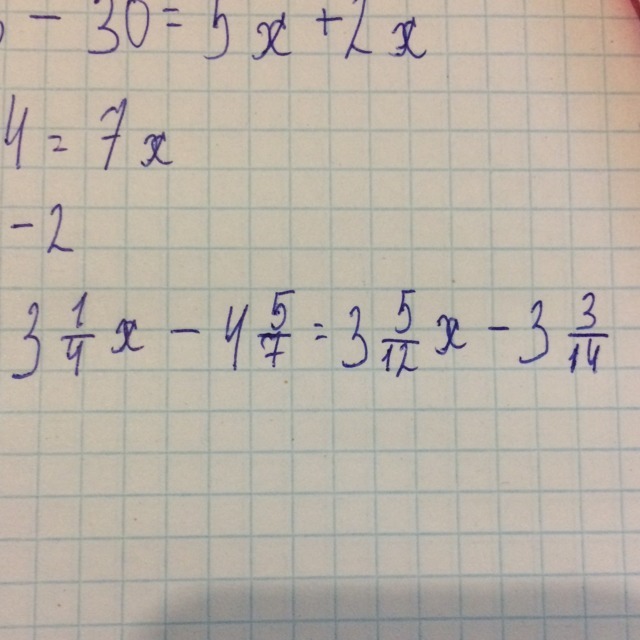 - 30 = 5x + 2x
4 = 7x
- 2
3 1/4 x - 4 5/7 = 3 5/12 x - 3 3/14